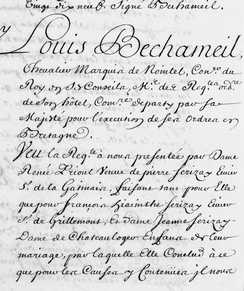 Signé Bechameil.
Louis Bechameil,
Chevalier Marquis de Nointel, Conser. du
Roy en Ses Conseils, Me. des Requtes. ord.
de Son hôtel, Comre. Departy par Sa
Majesté pour l'execution de ses Ordres en
Bretagne.
Veu la Regte. à nous presentée par Dame
Renée Veuve de pierre Jerizay
Sr. de la faisant tant pour Elle
que pour françois Hiacinthe Jerizay
Sr. de Grillemont, et Dame Jeanne Jerizay
Dame de Chateauloger Enfans de leur
mariage, par laquelle Elle Conclud a ce
que pour les Causes y Contenües il nous